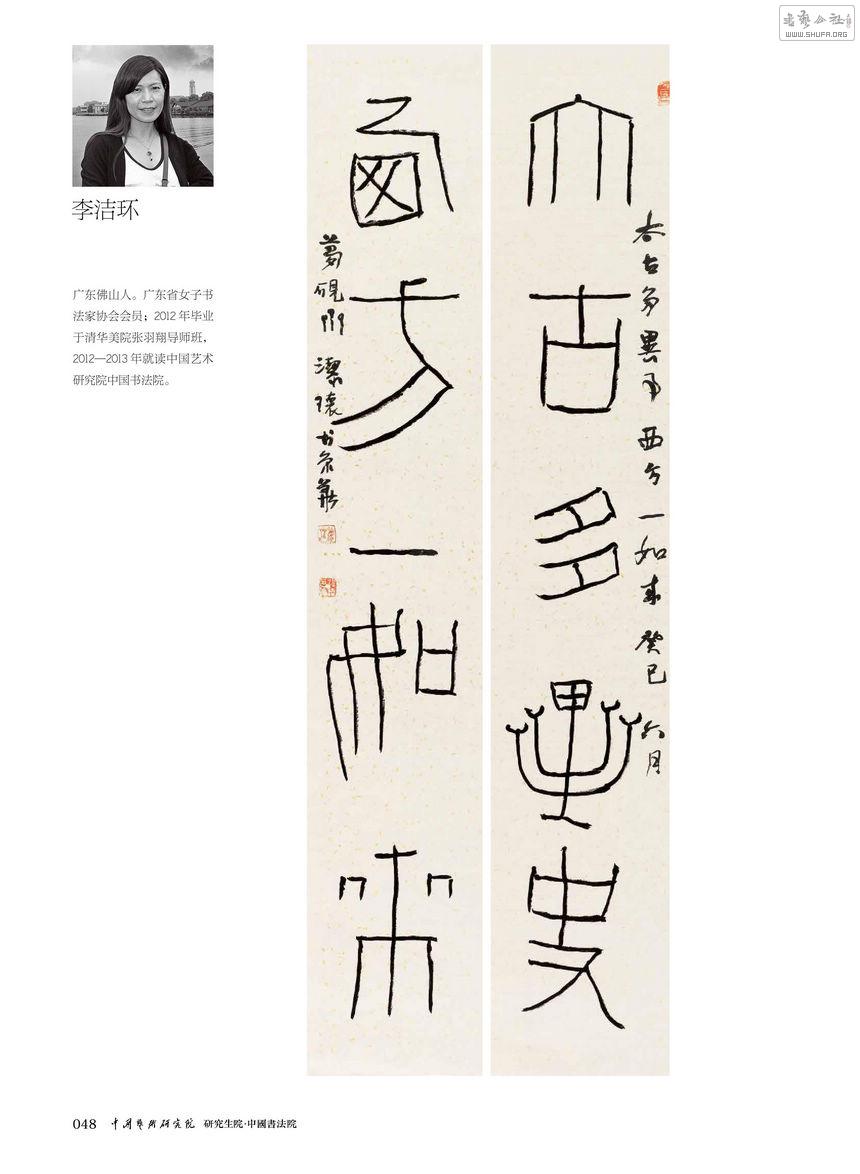 書藝公社
WWW.SHUFA.ORG
李洁环
广东佛山人。广东省女子书
法家协会会员；2012 年毕业
于清华美院张羽翔导师班，
2012—2013 年就读中国艺术
研究院中国书法院。
大古多異事
西方一如來
太古多異事 西方一如來 癸巳 六月
潔環书京華
048 中国艺术研究院 研究生院·中國書法院